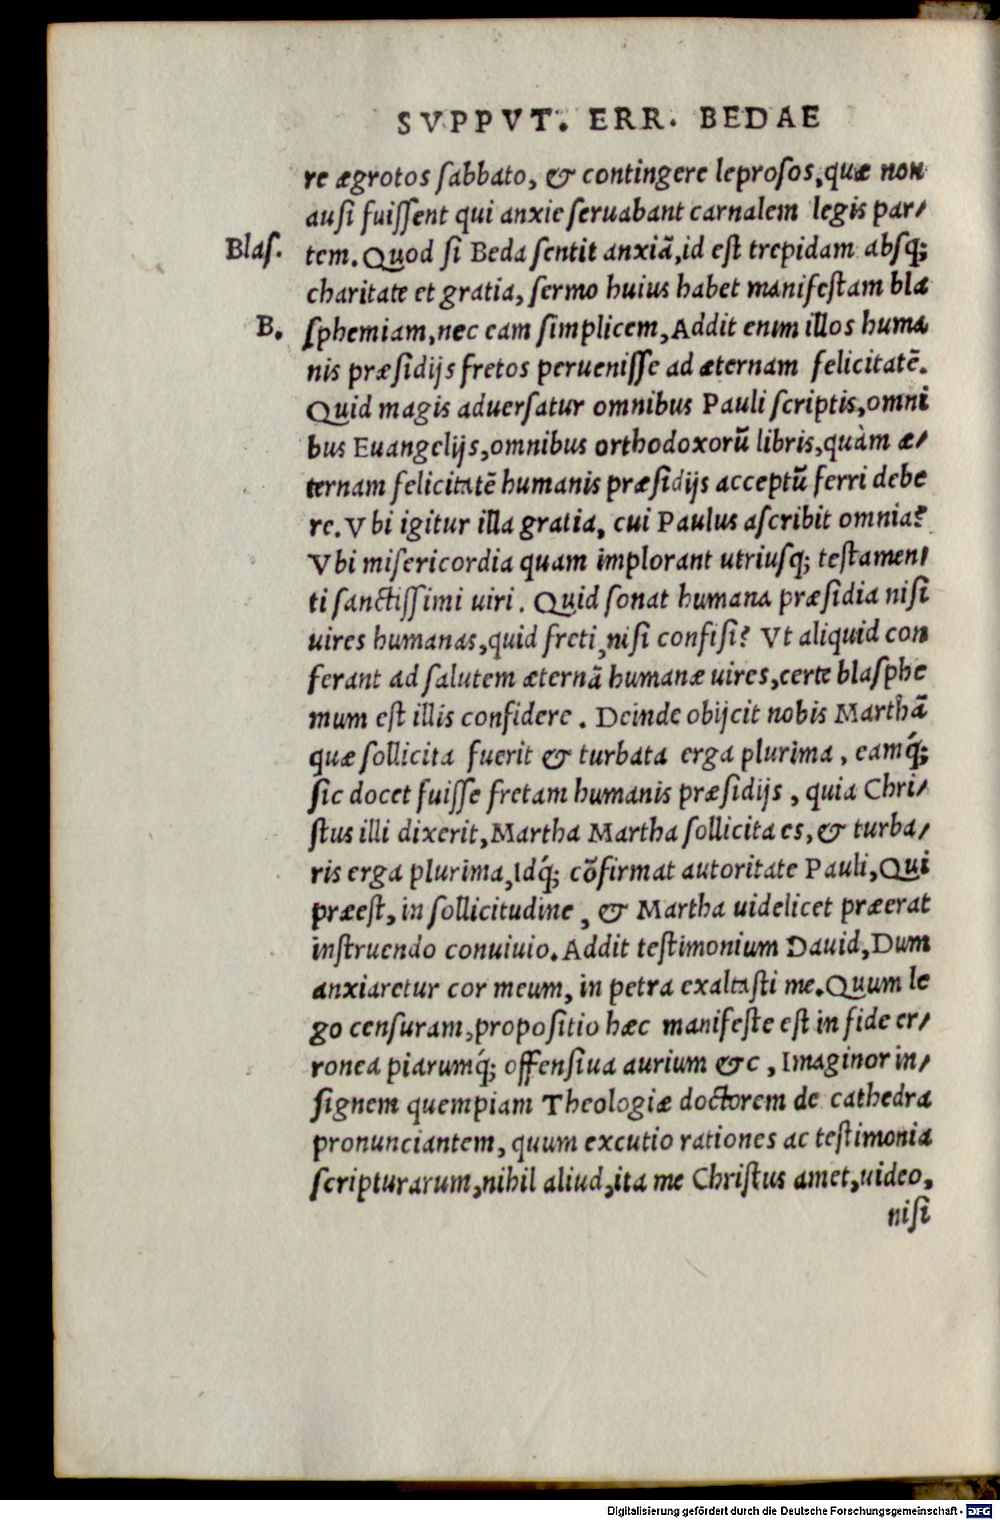 SVPPVT. ERR. BEDAE
re ægrotos sabbato, & contingere leprosos, quæ non
ausi fuissent qui anxie seruabant carnalem legis par/
Blas. tem. Quod si Beda sentit anxiã, id est trepidam absq;
charitate et gratia, sermo huius habet manifestam bla
B. sphemiam, nec eam simplicem, Addit enim illos huma
nis præsidijs fretos peruenisse ad æternam felicitatẽ.
Quid magis aduersatur omnibus Pauli scriptis, omni
bus Euangelijs, omnibus orthodoxorũ libris, quàm æ/
ternam felicitatẽ humanis præsidijs acceptũ ferri debe
re. Vbi igitur illa gratia, cui Paulus ascribit omnia?
Vbi misericordia quam implorant utriusq; testamen/
ti sanctissimi uiri. Quid sonat humana præsidia nisi
uires humanas, quid freti, nisi confisi? Vt aliquid con
ferant ad salutem æternã humanæ uires, certe blasphe
mum est illis confidere. Deinde obijcit nobis Marthã
quæ sollicita fuerit & turbata erga plurima, eamq́;
sic docet fuisse fretam humanis præsidijs, quia Chri/
stus illi dixerit, Martha Martha sollicita es, & turba/
ris erga plurima, Idq́; cõfirmat autoritate Pauli, Qui
præest, in sollicitudine, & Martha uidelicet præerat
instruendo conuiuio. Addit testimonium Dauid, Dum
anxiaretur cor meum, in petra exaltasti me. Quum le
go censuram, propositio hæc manifeste est in fide er/
ronea piarumq́; offensiua aurium &c, Imaginor in/
signem quempiam Theologiæ doctorem de cathedra
pronunciantem, quum excutio rationes ac testimonia
scripturarum, nihil aliud, ita me Christus amet, uideo,
nisi
Digitalisierung gefördert durch die Deutsche Forschungsgemeinschaft - DFG